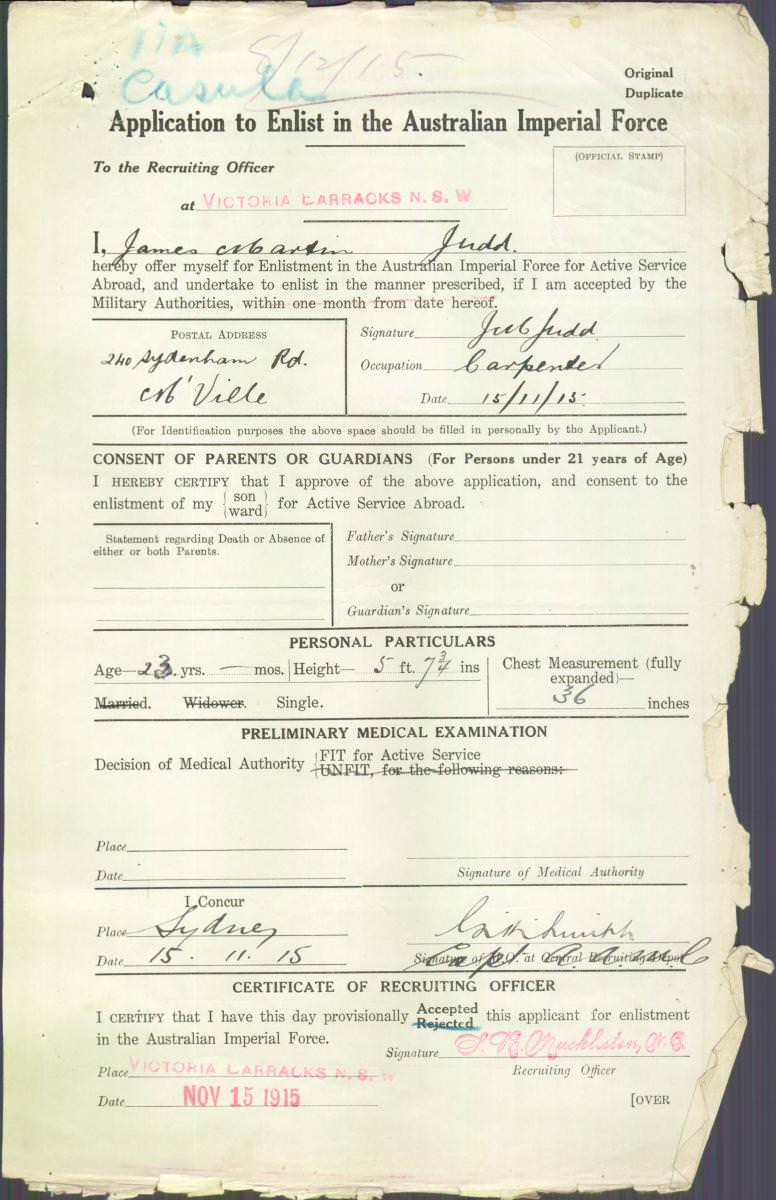 11A 8/12/15
Casula
Original
Duplicate
Application to Enlist in the Australian Imperial Force
To the Recruiting Officer
(OFFICIAL STAMP)
at VICTORIA BARRACKS N. S. W
I, James Martin Judd.
hereby offer myself for Enlistment in the Australian Imperial Force for Active Service
Abroad, and undertake to enlist in the manner prescribed, if I am accepted by the
Military Authorities, within one month from date hereof.
POSTAL ADDRESS
240 Sydenham Rd.
M'Ville
Signature J M Judd
Occupation Carpenter
Date 15/11/15
(For Identification purposes the above space should be filled in personally by the Applicant.)
CONSENT OF PARENTS OR GUARDIANS (For Persons under 21 years of Age)
I HEREBY CERTIFY that I approve of the above application, and consent to the
enlistment of my {son ward} for Active Service Abroad.
Statement regarding Death or Absence of
either or both Parents.
Father's Signature
Mother's Signature
or
Guardian's Signature
PERSONAL PARTICULARS
Age—23 yrs. — mos. Height— 5 ft. 7 3/4 ins
Chest Measurement (fully
expanded)—
36 inches
Married. Widower. Single.
PRELIMINARY MEDICAL EXAMINATION
Decision of Medical Authority {FIT for Active Service
UNFIT, for the following reasons:
Place
Date
Signature of Medical Authority
I Concur
Place Sydney
Date 15. 11. 15
Capt A.A.M.C
Signature of P.O. at Central Recruiting Depot
CERTIFICATE OF RECRUITING OFFICER
I CERTIFY that I have this day provisionally Accepted Rejected this applicant for enlistment
in the Australian Imperial Force.
Signature
Recruiting Officer
Place VICTORIA BARRACKS N. S. W
Date NOV 15 1915
[OVER